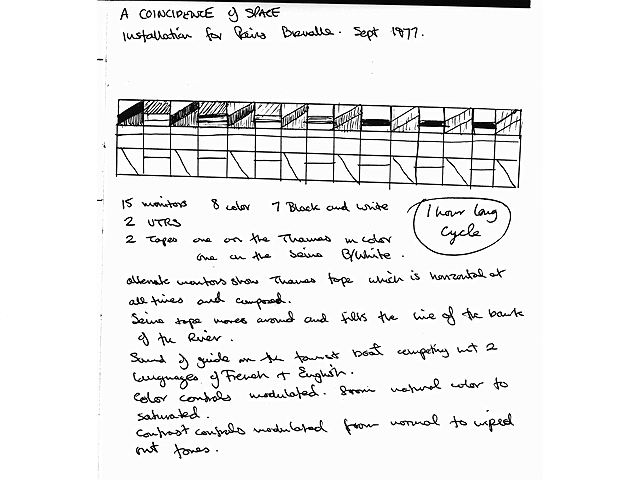 A COINCIDENCE of SPACE
Installation for Paris Biennalle. Sept 1977.
15 monitors 8 color 7 Black and white
2 VTRS
2 Tapes one on the Thames in color
one on the Seine B/White.
1 hour long
cycle
alternate monitors show Thames tape which is horizontal at
all times and composed.
Seine tape moves around and tilts the line of the bank
of the River.
Sound of guide on the tourist boat competing wit 2
languages of French + English.
Color controls modulated. from natural color to
saturated.
Contrast controls modulated from normal to wiped
out tones.